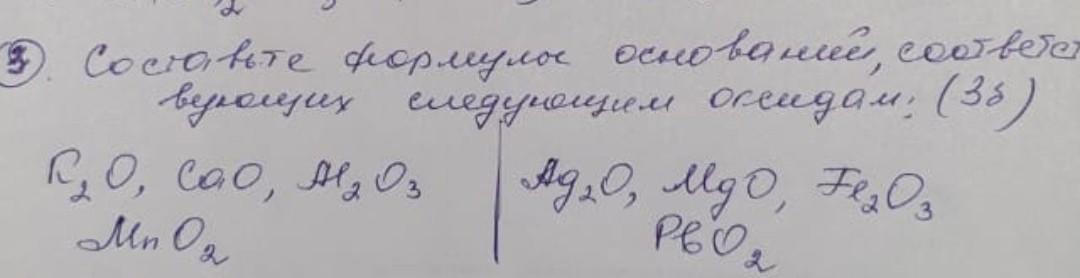 ③. Составьте формулы оснований, соответст
вующих следующим оксидам: (3б)
K₂O, CaO, Al₂O₃ | Ag₂O, MgO, Fe₂O₃
MnO₂ | PbO₂